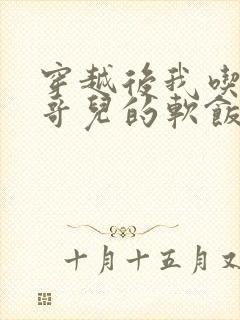 穿越後我喫
哥兒的軟飯
十月十五月又